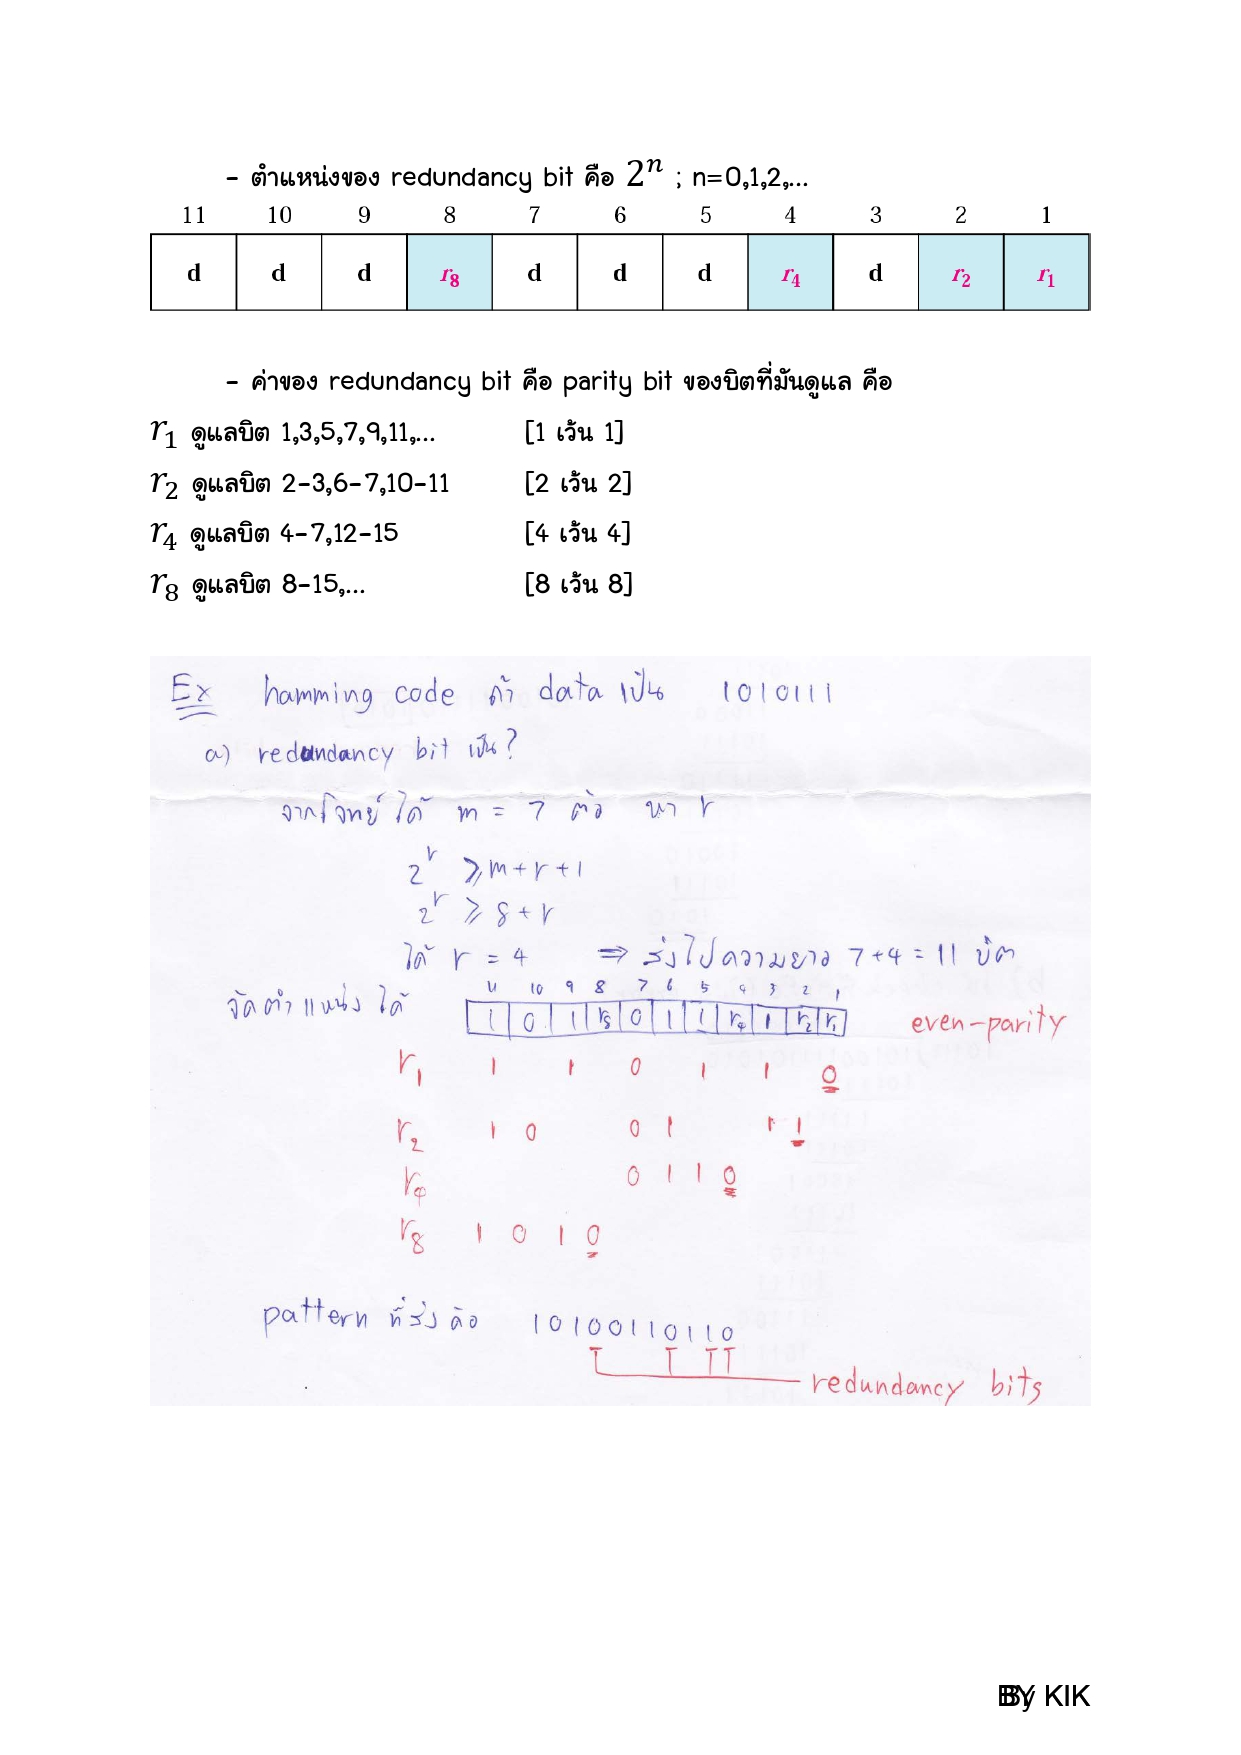 - ตำแหน่งของ redundancy bit คือ 2ⁿ ; n=0,1,2,...
11 10 9 8 7 6 5 4 3 2 1
d d d r₈ d d d r₄ d r₂ r₁
- ค่าของ redundancy bit คือ parity bit ของบิตที่มันดูแล คือ
r₁ ดูแลบิต 1,3,5,7,9,11,... [1 เว้น 1]
r₂ ดูแลบิต 2-3,6-7,10-11 [2 เว้น 2]
r₄ ดูแลบิต 4-7,12-15 [4 เว้น 4]
r₈ ดูแลบิต 8-15,... [8 เว้น 8]
Ex hamming code ถ้า data เป็น 1010111
a) redundancy bit เป็น?
จากโจทย์ ได้ m = 7 ต้อง หา r
2ʳ ≥ m+r+1
2ʳ ≥ 8+r
ได้ r = 4 ⇒ ส่งไปความยาว 7+4 = 11 บิต
11 10 9 8 7 6 5 4 3 2 1
จัดตำแหน่ง ได้ 1 0 1 r₈ 0 1 1 r₄ 1 r₂ r₁ even-parity
r₁ 1 1 0 1 1 0
r₂ 1 0 0 1 1 1
r₄ 0 1 1 0
r₈ 1 0 1 0
pattern ที่ส่ง คือ 10100110110
redundancy bits
BY KIK